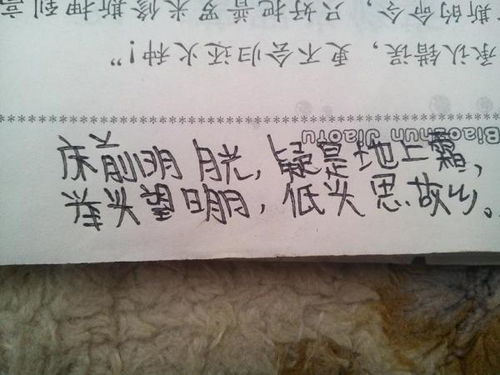 床前明月光，疑是地上霜，
举头望明月，低头思故乡。
Biaozhun Jiaoyu
承认错误，更不会归还火种！”
斯的命令，只好把普罗米修斯押到高